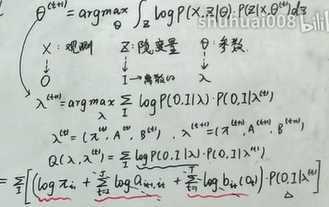 shuhuai008
θ^(t+1) = argmax_θ ∫_Z log P(X,Z|θ)·P(Z|X,θ^(t)) dz
X：观测 Z：隐变量 θ：参数
O I→离散的 λ
λ^(t+1) = argmax_λ Σ_I log P(O,I|λ)·P(O,I|λ^(t))
λ^(t) = (π^(t), A^(t), B^(t)), λ^(t+1) = (π^(t+1), A^(t+1), B^(t+1))
Q(λ,λ^(t)) = Σ_I log P(O,I|λ)·P(O,I|λ^(t))
= Σ_I [(log π_i1 + Σ log a_it,it+1 + Σ log b_it(o_t))·P(O,I|λ^(t))]